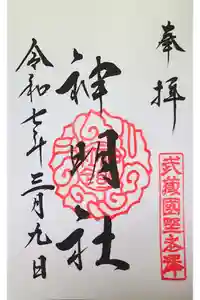 奉拝
武蔵國
神明社
令和七年三月九日